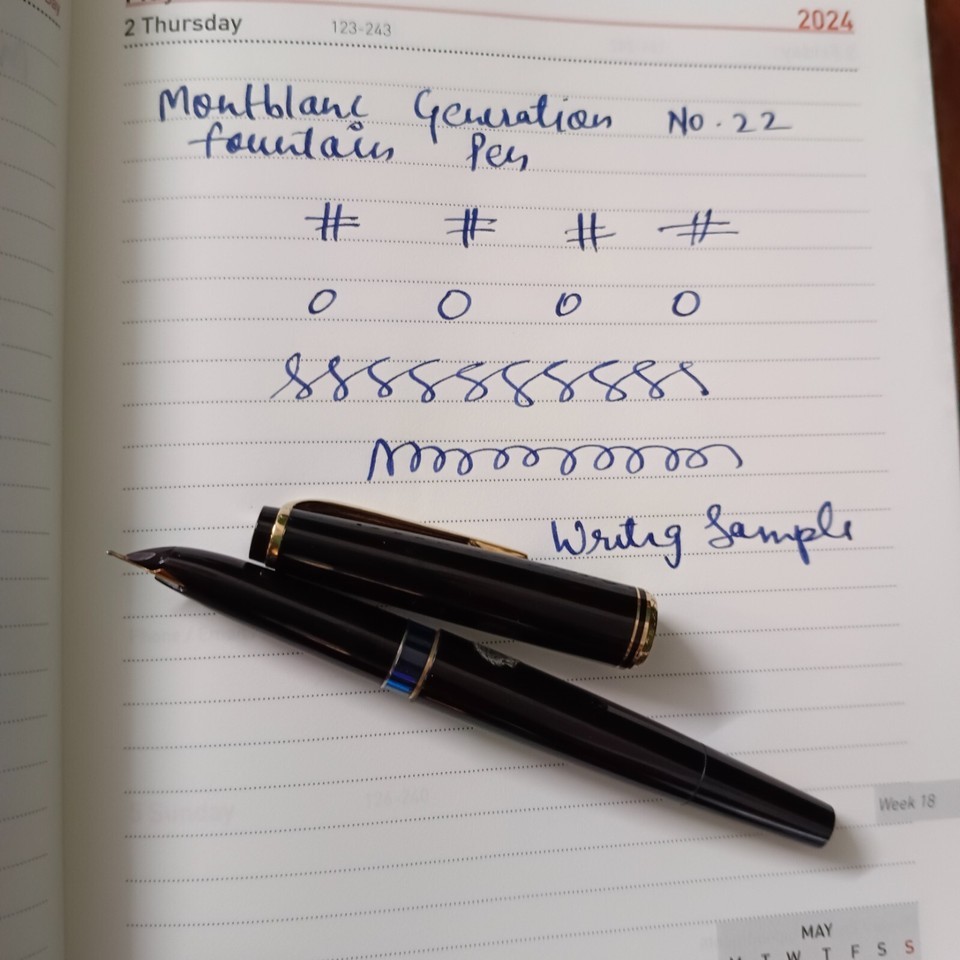 2 Thursday 123-243 2024
Montblanc Generation No. 22
fountain Pen
# # # #
0 0 0 0
Writig Sample
Week 18
MAY
T W T F S S